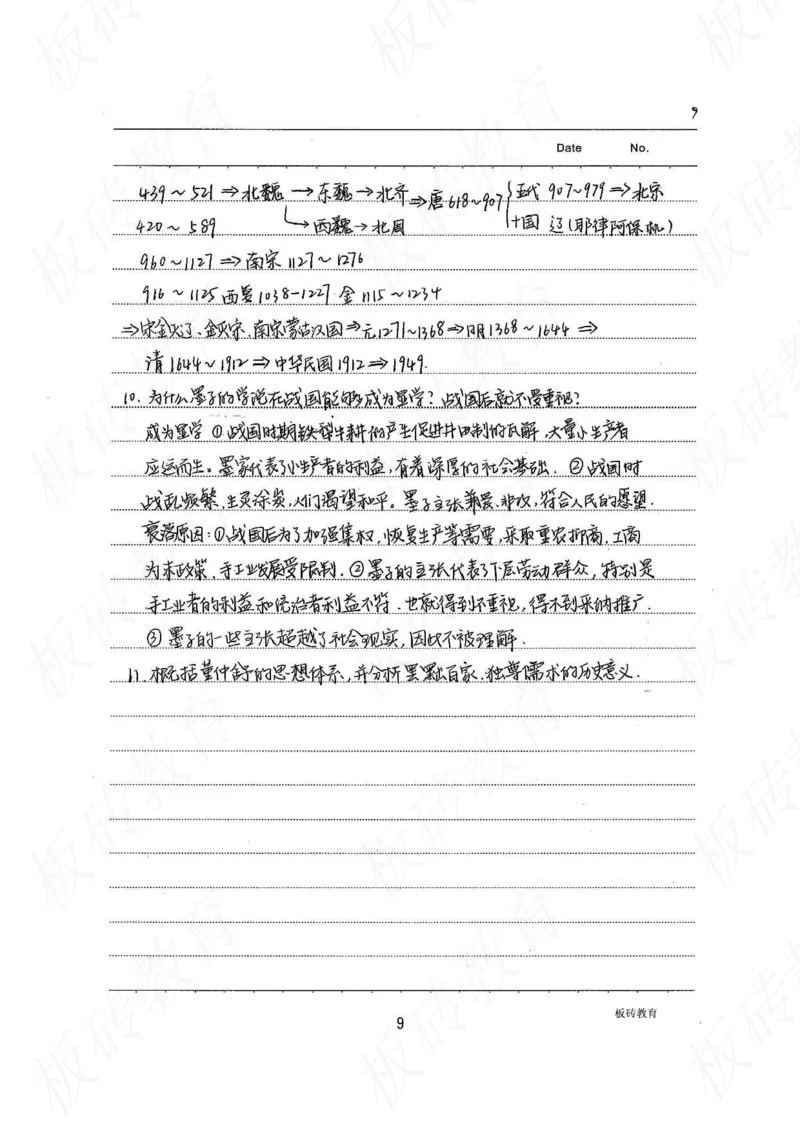 9
Date No.
439～521⇒北魏→东魏→北齐⇒唐618～907{五代 907～979⇒北京
420～589 ↳西魏→北周 十国 辽(耶律阿保机)
960～1127⇒南宋1127～1276
916～1125 西夏1038-1227 金1115～1234
⇒宋金灭辽、金灭宋、南宋蒙古汉国⇒元1271～1368⇒明1368～1644⇒
清1644～1912⇒中华民国1912⇒1949.
10. 为什么墨子的学说在战国能够成为显学？战国后就不受重视？
成为显学 ①战国时期铁犁牛耕的产生促进井田制的瓦解，大量小生产者
应运而生。墨家代表了小生产者的利益，有着深厚的社会基础. ②战国时
战乱频繁,生灵涂炭,人们渴望和平。墨子主张兼爱.非攻,符合人民的愿望.
衰落原因:①战国后为了加强集权,恢复生产等需要,采取重农抑商,工商
为末政策,手工业发展受限制.②墨子的主张代表了下层劳动群众,特别是
手工业者的利益和统治者利益不符.也就得到不重视,得不到采纳推广.
③墨子的一些主张超越了社会现实,因此不被理解.
11.概括董仲舒的思想体系,并分析罢黜百家.独尊儒术的历史意义.
板砖教育
9